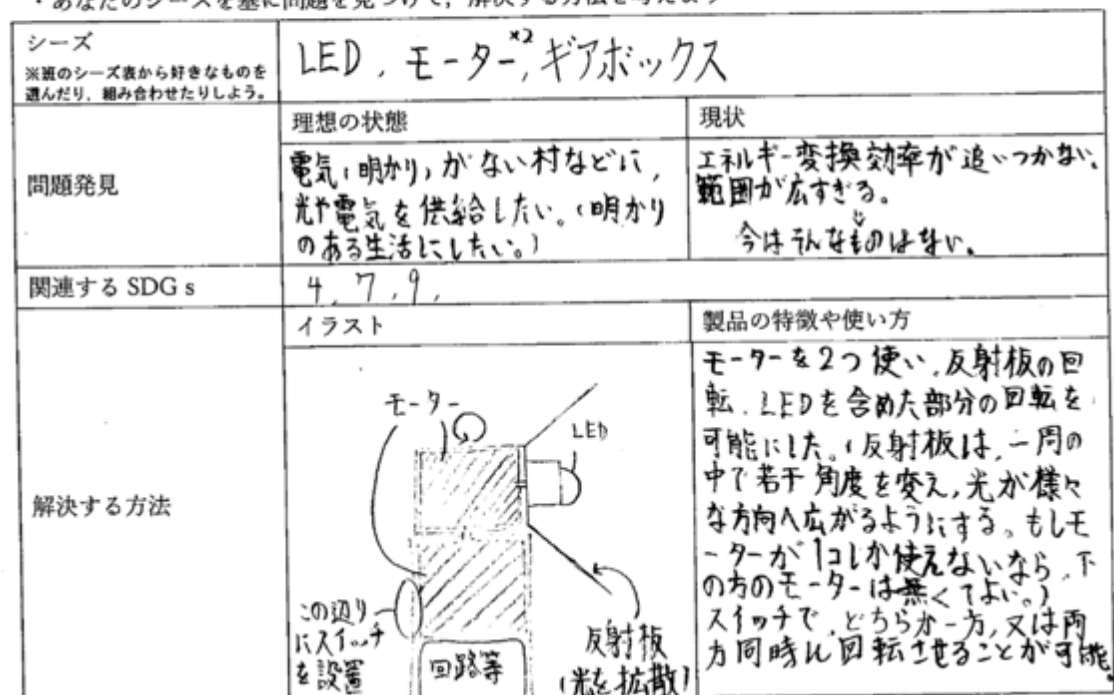 ・あなたのシーズを基に問題を見つけて，解決する方法を考えよう
シーズ
※班のシーズ表から好きなものを
選んだり，組み合わせたりしよう。
LED，モーター×2，ギアボックス
問題発見
理想の状態
電気(明かり)がない村などに，
光や電気を供給したい。(明かり
のある生活にしたい。)
現状
エネルギー変換効率が追いつかない。
範囲が広すぎる。
⇓
今はそんなものはない。
関連する SDG s
4，7，9，
解決する方法
イラスト
モーター
LED
この辺り
にスイッチ
を設置
回路等
反射板
(光を拡散)
製品の特徴や使い方
モーターを2つ使い，反射板の回
転，LEDを含めた部分の回転を
可能にした。(反射板は，一周の
中で若干角度を変え，光が様々
な方向へ広がるようにする。もしモ
ーターが1コしか使えないなら，下
の方のモーターは無くてよい。)
スイッチで，どちらか一方，又は両
方同時に回転させることが可能。